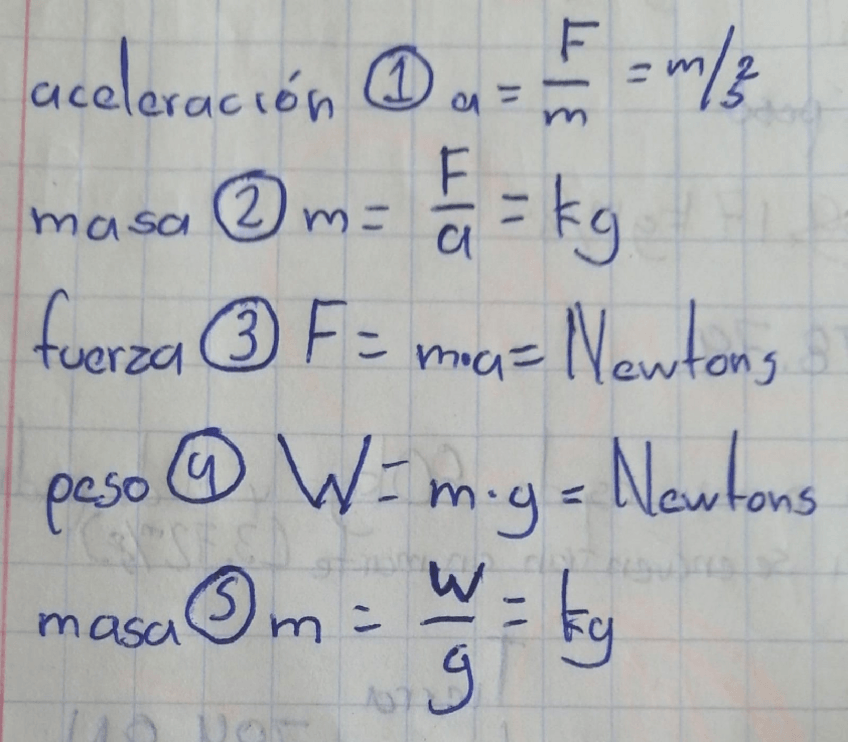 aceleración ① a = F/m = m/s²
masa ② m = F/a = kg
fuerza ③ F = m·a = Newtons
peso ④ W = m·g = Newtons
masa ⑤ m = W/g = kg